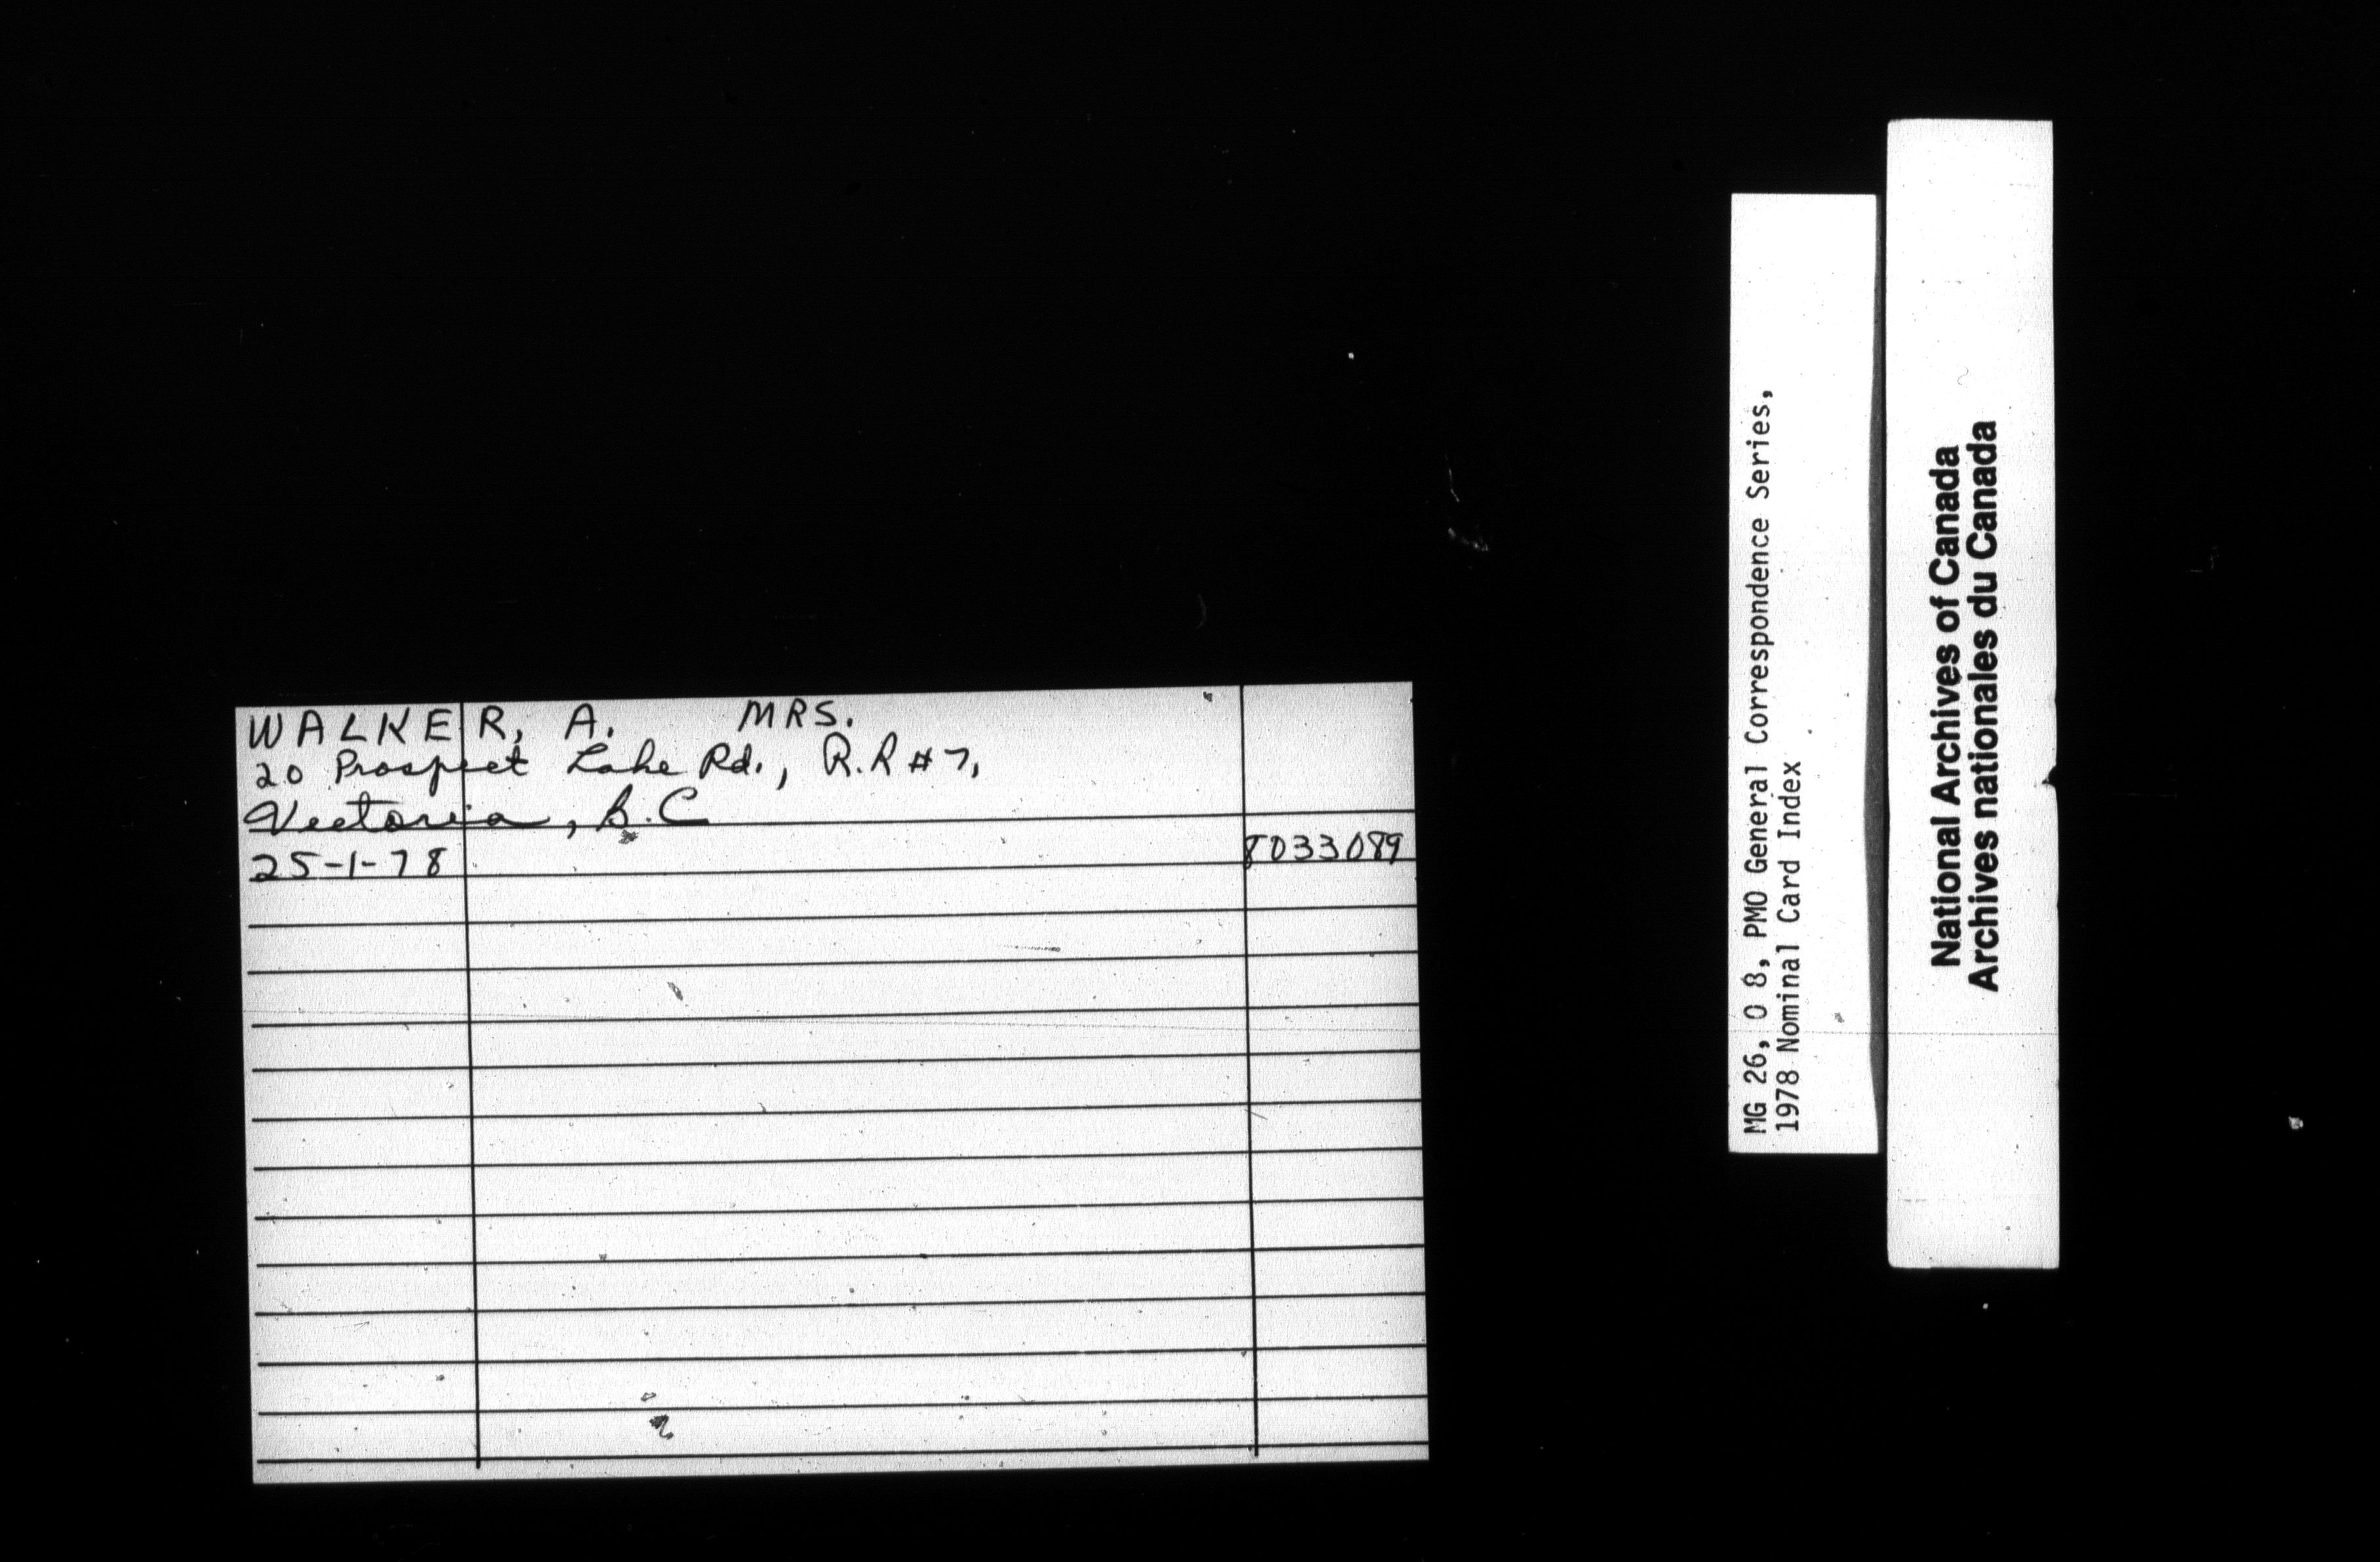 WALKER, A. MRS.
20 Prospect Lake Rd., R.R #7,
Victoria, B.C
25-1-78 8033089
MG 26, O 8, PMO General Correspondence Series,
1978 Nominal Card Index
National Archives of Canada
Archives nationales du Canada